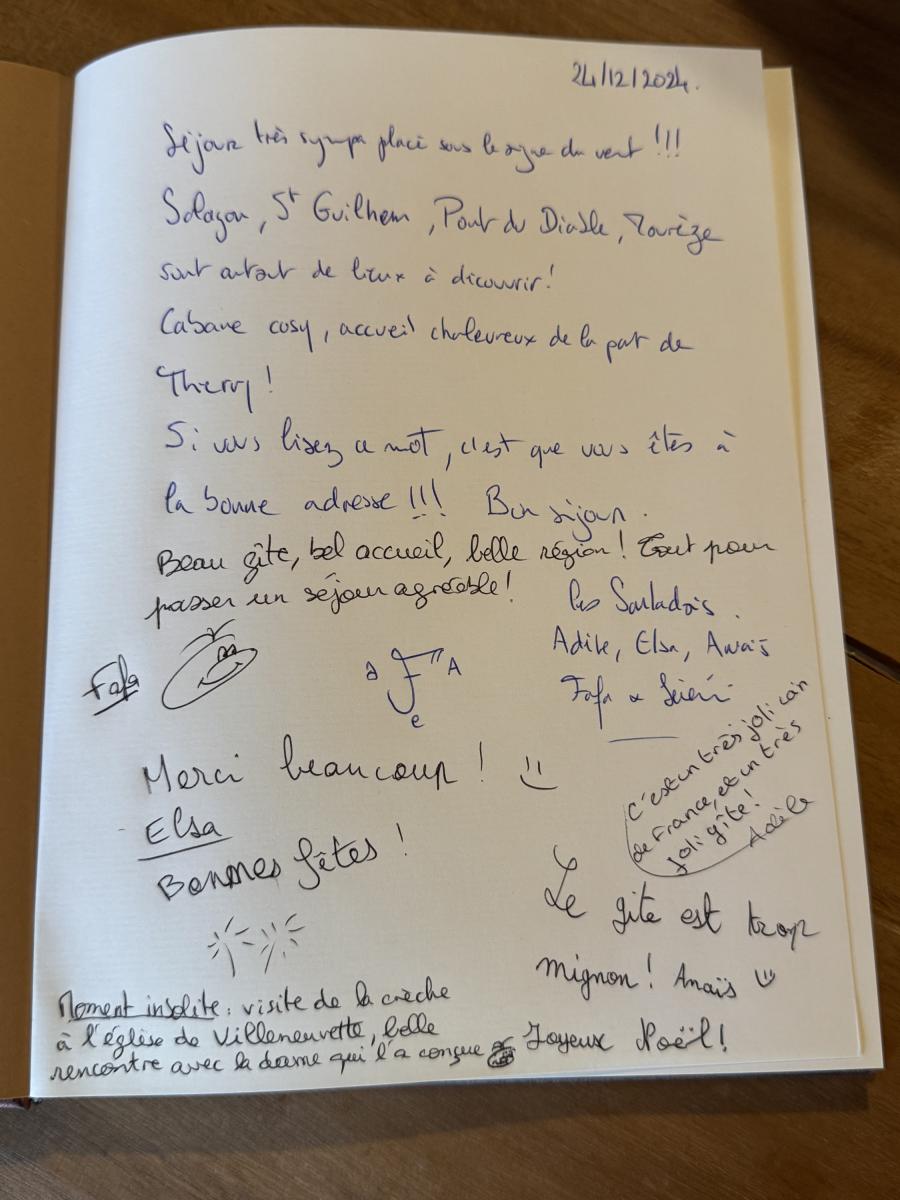 24/12/2024.
Séjour très sympa placé sous le signe du vent !!!
Salagou, St Guilhem, Pont du Diable, Mourèze
sont autant de lieux à découvrir!
Cabane cosy, accueil chaleureux de la part de
Thierry!
Si vous lisez ce mot, c'est que vous êtês à
la bonne adresse !!! Bon séjour.
Beau gîte, bel accueil, belle région! Tout pour
passer un séjour agréable!
Les Sarladais.
Adèle, Elsa, Anaïs
Fafa &
Fafa
a A
e
Merci beaucoup! :)
Elsa
Bonnes fêtes!
C'est un très joli coin
de France, et un très
joli gîte!
Adèle
Le gîte est trop
mignon! Anaïs :)
Moment insolite: visite de la crèche
à l'église de Villeneuvette, belle
rencontre avec la dame qui l'a conçue
Joyeux Noël!